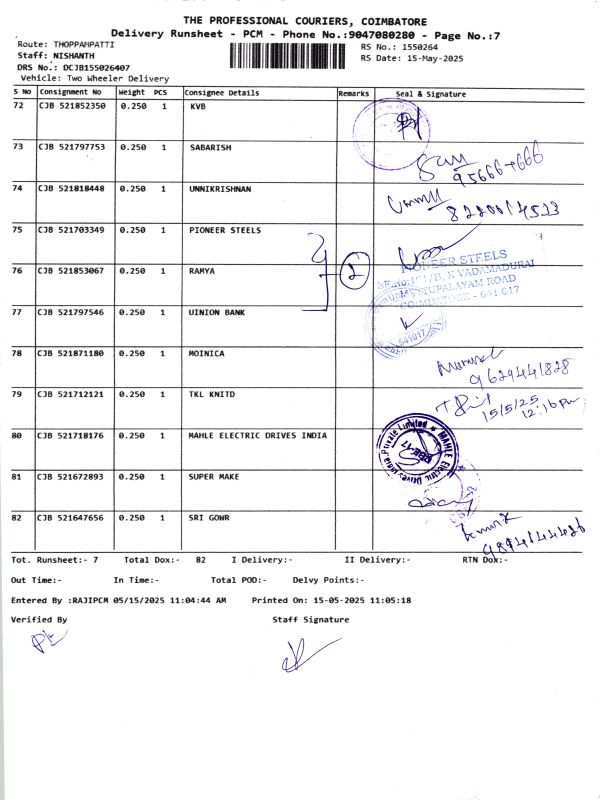 THE PROFESSIONAL COURIERS, COIMBATORE
Delivery Runsheet - PCM - Phone No.:9047080280 - Page No.:7
Route: THOPPAMPATTI
RS No.: 1550264
Staff: NISHANTH
RS Date: 15-May-2025
DRS No.: DCJB155026407
Vehicle: Two Wheeler Delivery
S No Consignment No Weight PCS Consignee Details Remarks Seal & Signature
72 CJB 521852350 0.250 1 KVB
73 CJB 521797753 0.250 1 SABARISH
74 CJB 521818448 0.250 1 UNNIKRISHNAN
75 CJB 521703349 0.250 1 PIONEER STEELS
PIONEER STEELS
76 CJB 521853067 0.250 1 RAMYA 2
COIMBATORE - 641 017
77 CJB 521797546 0.250 1 UINION BANK
641017
78 CJB 521871180 0.250 1 MOINICA
9629441828
79 CJB 521712121 0.250 1 TKL KNITD
15/5/25
12:16 pm
80 CJB 521718176 0.250 1 MAHLE ELECTRIC DRIVES INDIA
MAHLE Electric Drives India Private Limited
81 CJB 521672893 0.250 1 SUPER MAKE
82 CJB 521647656 0.250 1 SRI GOWR
Tot. Runsheet:- 7 Total Dox:- 82 I Delivery:- II Delivery:- RTN Dox:-
Out Time:- In Time:- Total POD:- Delvy Points:-
Entered By :RAJIPCM 05/15/2025 11:04:44 AM Printed On: 15-05-2025 11:05:18
Verified By Staff Signature